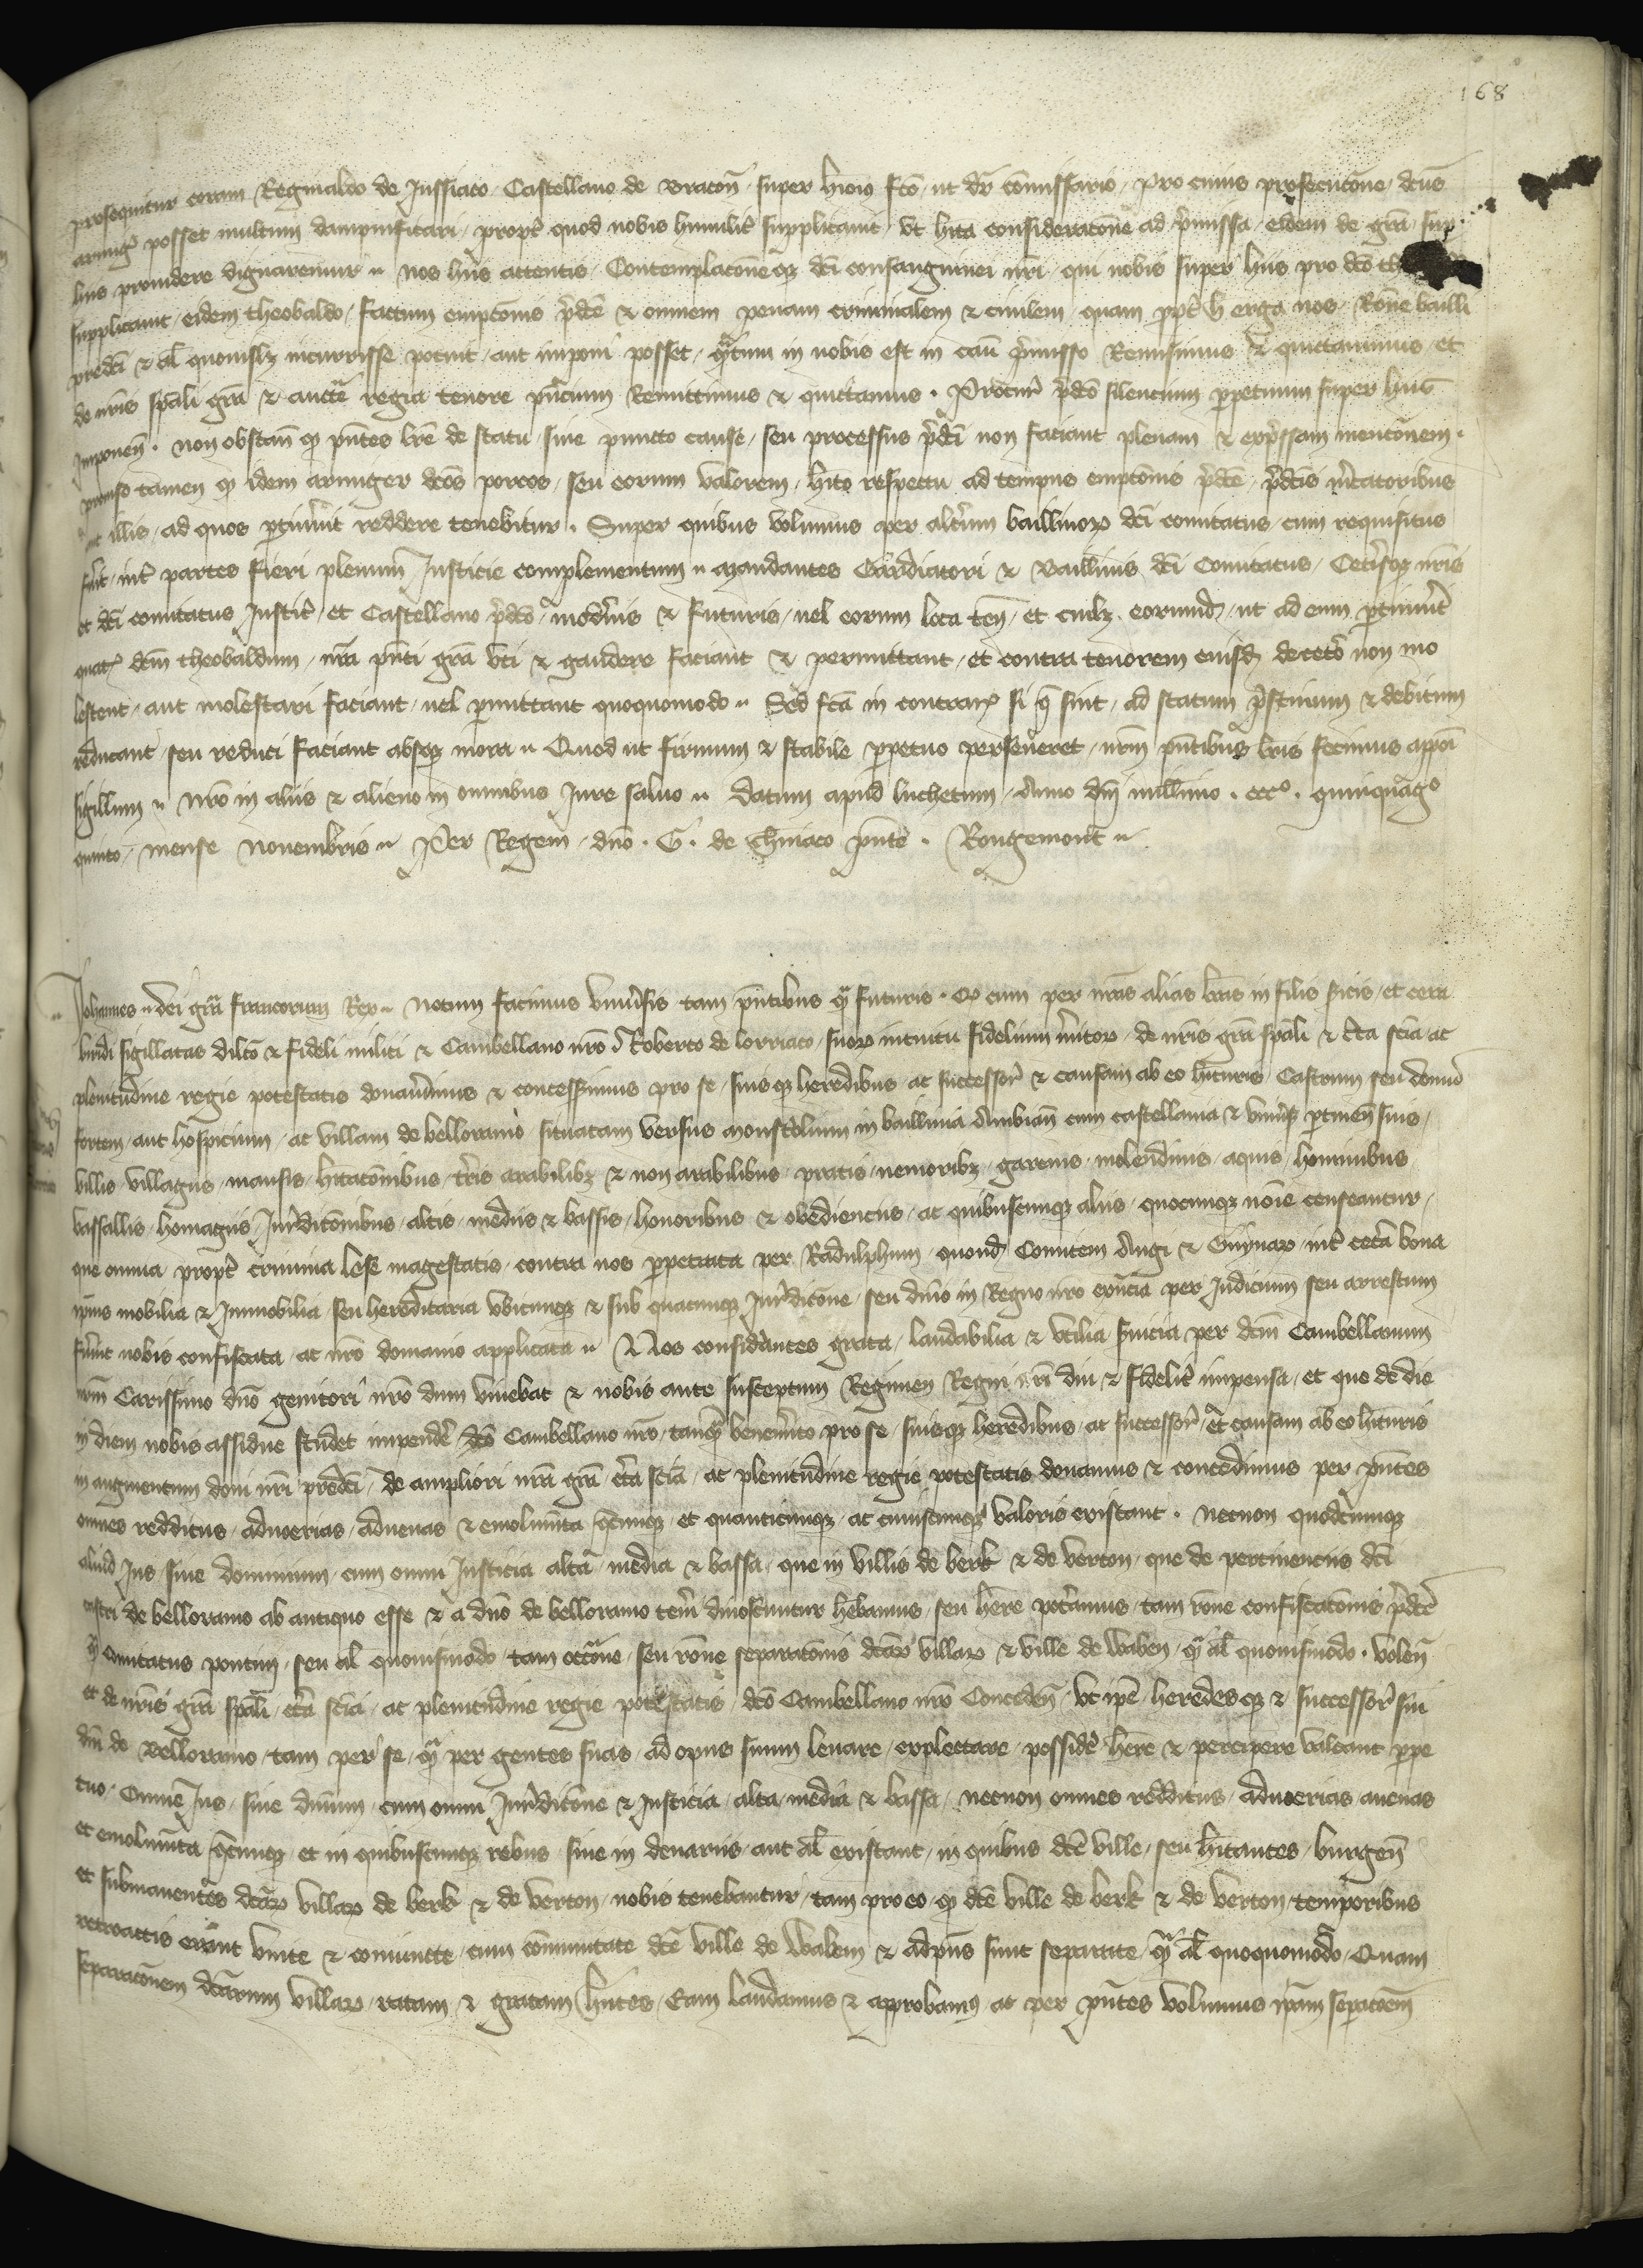 168
prosequitur coram Reginaldo de Jussiaco Castellano de Bracoñ super hiis fcō ut dr̄ cōmissario pro cuius prosecutōne dcus
armigˀ posset multum dampnificari proptˀ quod nobis humilitˀ supplicavit ut hita consideratōne ad p̄missa eidem de grā sup
hiis providere dignaremur nos hiis attentis Contemplatōneqʒ dci consanguinei nr̄i qui nobis super hiis pro dcō
supplicavit eidem theobaldo factum emptōnis p̄dcē & omnem penam criminalem & civilem quam erga nos Rōne
predcī & al̄ quovislʒ incurrisse potuit aut imponi posset qᵃtum in nobis est in casu p̄misso Remisimus & quictavimus et
de nrīs spāli grā & aucte regia tenore pn̄cium Remittimus & quictamus . Procurˀ p̄dcō silencium ꝑpetuum super hiis
imponeñ . non obstañ ꝙ pn̄tes lr̄e de statu sive puncto cause seu processus p̄dcī non faciant plenam & exp̄ssam mencōnem .
proviso tamen ꝙ idem armiger dcōs porcos seu eorum valorem hito respectu ad tempus emptōnis p̄dcē p̄dcīs mˀcatoribus
aut illis ad quos ꝑtinuˀit reddere tenebitur . Super quibus volumus per altˀum baillivoꝝ dci comitatus cum requisitus
fuˀit intˀ partes fieri plenum Justicie complementum mandantes Gardiatori & Baillivis dci Comitatus Cetˀisqʒ nrīs
et dci comitatus Justicˀ et Castellano p̄dcō modˀnis & futuris vel eorum loca teñ et cuilʒ eorumd̄ ut ad eum ꝑtinuˀit
quatˀ dcm̄ theobaldum nrā pn̄ti grā uti & gaudere faciant & permittant et contra tenorem eiusd̄ decetˀo non mo
lestent aut molestari faciant vel ꝑmittant quoquomodo Sed fcā in contrarˀ si q̄ sint ad statum p̄stinum & debitum
reducant seu reduci faciant absqʒ mora Quod ut firmum & stabile ꝑpetuo perseveret nrm̄ pn̄tibus lrīs fecimus appōi
sigillum nrō in aliis & alieno in omnibus Jure salvo Datum apud luchetum Anno dn̄i millimo . cccº . quinquagº
quinto mense Novembris Per Regem dn̄o . G . de pn̄te . Rougemont
Johannes dei grā francorum Rex Notum facimus univˀsis tam pn̄tibus qᵃ futuris . ꝙ cum per nrās alias lrās in filis sicis et cera
viridi sigillatas dilcō & fideli militi & Cambellano nrō Roberto de lorriaco suoꝝ intuitu fidelium mˀitoꝝ de nrīs grā spāli & cˀta scīa ac
plenitudine regie potestatis donavˀimus & concessimus pro se suisqʒ heredibus ac successorˀ & causam ab eo hīturis Castrum seu domū
fortem aut hospicium ac villam de belloramo situatam versus Monstˀolium in baillivia Ambiañ cum castellania & univˀsʒ ꝑtineñ suis
villis villagiis mansis hitatōnibus tˀris arabilibʒ & non arabilibus pratis nemoribʒ garenis molendinis aquis hominibus
vassallis homagiis Jurˀdicōnibus altis mediis & bassis honoribus & obedienciis ac quibuscunqʒ aliis quocunqʒ noīe censeantur
que omnia proptˀ crimina lese magestatis contra nos ꝑpetrata per Radulphum quond̄ Comitem Augi & Guynaꝝ intˀ cetˀa bona
ipīus mobilia & Immobilia seu hereditaria ubicunqʒ & sub quacunqʒ Jurˀdicōne seu dn̄io in Regno nrō exn̄cia per Judicium seu arrestum
fuˀunt nobis confiscata ac nrō domanio applicata Nos considˀantes grata laudabilia & utilia sˀvicia per dcm̄ Cambellanum
nrm̄ Carissimo dn̄o genitori nrō dum vivebat & nobis ante susceptum Regimen Regni nr̄i diu & fidelitˀ impensa et que de die
in diem nobis assidue studet impendˀe dcō Cambellano nrō tanqᵃ benemˀito pro se suisqʒ heredibus ac successorˀ & causam ab eo hīturis
in augmentum doni nr̄i predcī de ampliori nrā grā cˀta scīa ac plenitudine regie potestatis donamus & concedimus per pn̄tes
omnes redditus advoerias advenas & emolumˀta qcunqʒ et quanticunqʒ ac cuiuscunqʒ valoris existant . necnon quodcunqʒ
aliud Jus sive dominium cum omni Justicia alta media & bassa que in villis de berk & de verton que de pertinenciis dci
castri de belloramo ab antiquo esse & a dn̄o de belloramo tenˀi dinoscuntur hebamus seu hēre potˀamus tam rōne confiscatōnis p̄dcē
qᵃ Comitatus pontivi seu al̄ quovismodo tam occōne seu rōne separatōnis dcāꝝ villaꝝ & ville de Waben qᵃ al̄ quovismodo . Voleñ
et de nrīs grā spāli cˀta scīa ac plenitudine regie potestatis dcō Cambellano nrō Concedeñ ut ipē heredesqʒ & successorˀ sui
dn̄i de Belloramo tam per se qᵃ per gentes suas ad opus suum levare explectare possidˀe hēre & percipere valeant ꝑpe
tuo Omne Jus sive dn̄ium cum omni Jurˀdicōne & Justicia alta media & bassa necnon omnes redditus advoerias avenas
et emolumˀta qcunqʒ et in quibuscunqʒ rebus sive in denariis aut al̄ existant in quibus dcē ville seu hītantes burgeñ
et submanentes dcāꝝ villaꝝ de berk & de verton nobis tenebantur tam pro eo ꝙ dcē ville de berk & de verton temporibus
retroactis erant unite & coniuncte cum cōmunitate dcē ville de Waben & adpn̄s sunt separate qᵃ al̄ quoquomodo Quam
separatōnem dcārum villaꝝ ratam & gratam hn̄tes Eam laudamus & approbamus ac per pn̄tes volumus ipām sepatōem